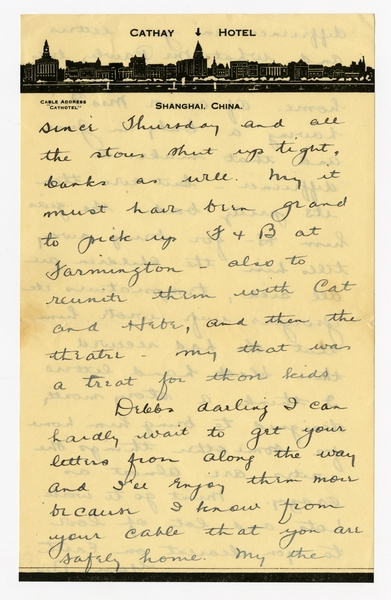 CATHAY HOTEL
CABLE ADDRESS
"CATHOTEL"
SHANGHAI, CHINA.
since Thursday and all
the stores shut up tight,
banks as well. My it
must have been grand
to pick up F & B at
Farmington - also to
reunite them with Cat
and Hebe, and then the
theatre - my that was
a treat for those kids
Debbs darling I can
hardly wait to get your
letters from along the way
and I'll Enjoy them more
because I know from
your cable that you are
safely home. My the